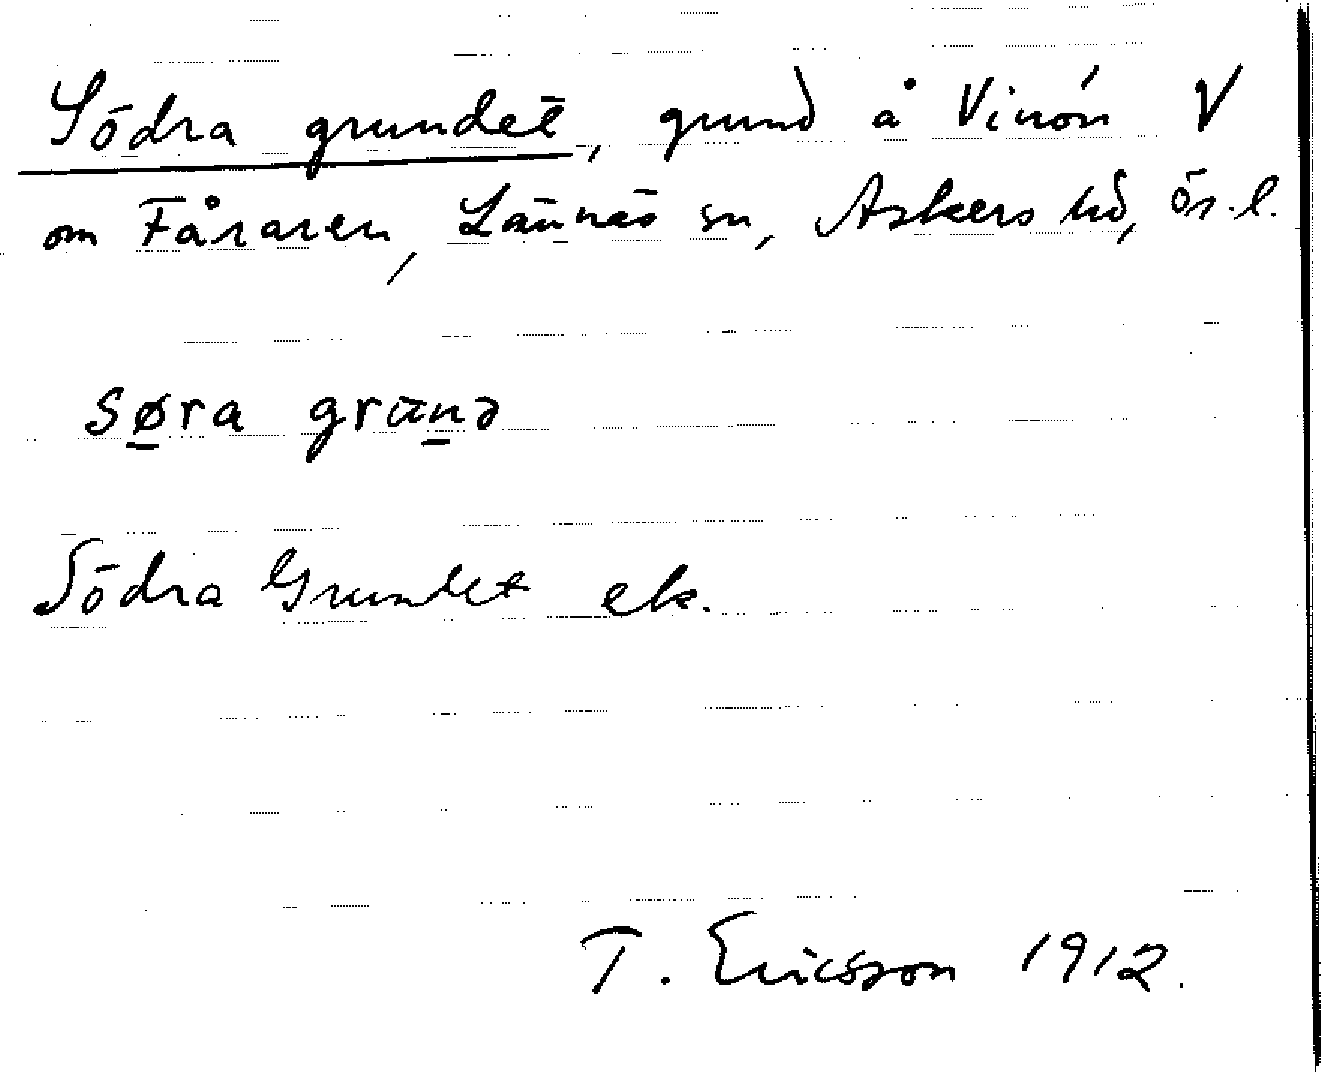 Södra grundet, grund å Vinön V
om Fåraren, Lännäs sn, Askers hd, ör. l.
søra grunə
Södra Grundet ek.
T. Ericsson 1912.